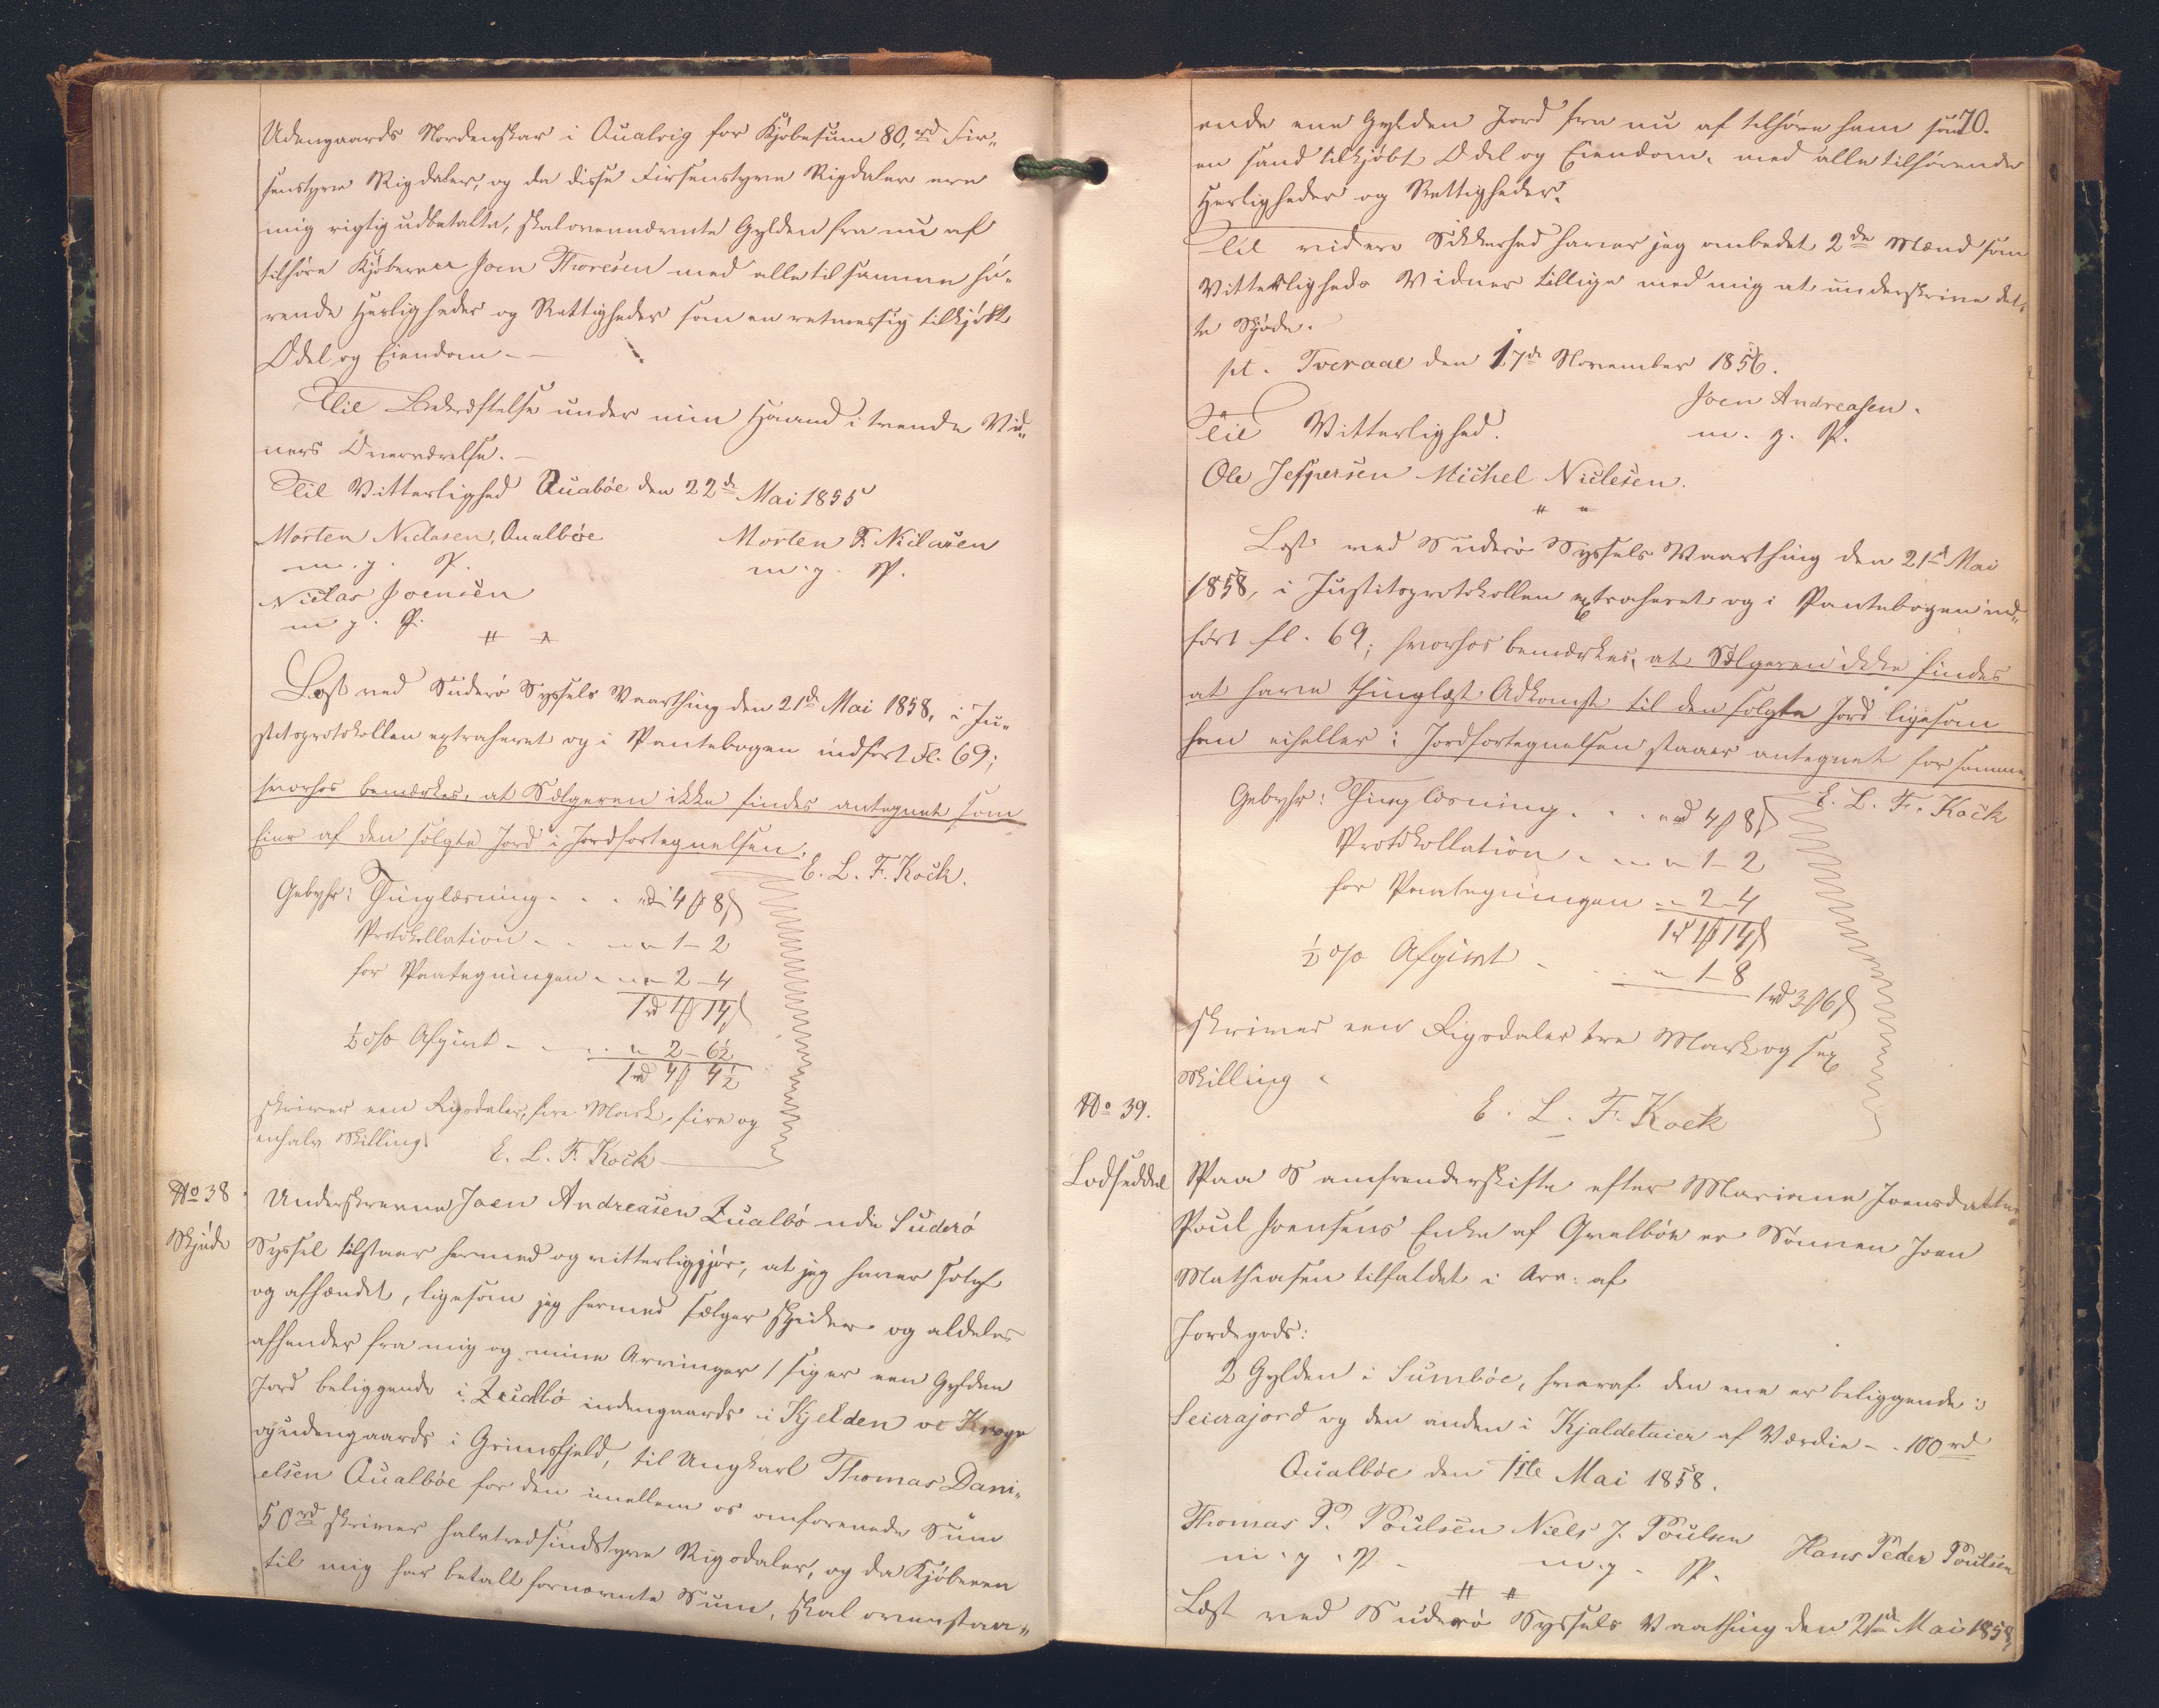 Udengaards Nordenskar i Qualvig for Kjøbesum 80,rd Fir„
senstyve Rigdaler, og da disse Firsenstyve Rigdaler ere
mig rigtig udbetalte, skal ovennævnte Gylden fra nu af
tilhöre Kjøberen Joen Thoresen med alle til samme hö„
rende Herligheder og Rettigheder som en retmessig tilkjøbt
Odel og Eiendom. —
Til Bekræftelse under min Haand i tvende Vid„
ners Overværelse. —
Til Vitterlighed Quabøe den 22de Mai 1855
Morten Niclasen, Qualbøe Morten F. Niclasen
m. g. P. m. g. P.
Niclas Joensen
m. g. P.
Læst ved Süderø Syssels Vaarthing den 21de Mai 1858, i Ju„
stitsprotokollen extraheret og i Pantebogen indført Fl. 69;
hvorhos bemærkes, at Sælgeren ikke findes antegnet som
Eier af den solgte Jord i Jordfortegnelsen.
E. L. F. Kock.
Gebyhr: Thinglæsning . . . rd 4 ß 8
Protokollation . . . " 1 – 2
for Paategningen . . . " 2 – 4
1 rd 1 14
½ o/o Afgivt – . . . " 2 – 6½
1 rd 4 4½
skriver een Rigsdaler, fire Mark, fire og
enhalv Skilling.
E. L. F. Kock
No 38
Skjøde
Underskrevne Joen Andreasen Qualbö udi Suderö
Syssel tilstaar hermed og vitterligjør, at jeg haver solgt
og afhændet, ligesom jeg hermed sælger skjöder og aldeles
afhender fra mig og mine Arvinger / siger een Gylden
Jord beliggende i Qualbö indengaards i Kjelden oc Kroge
og udengaards i Grimsfjeld, til Ungkarl Thomas Dani„
elsen Qualbøe for den imellem os omforenede Sum
50rd skriver halvtredsindstyve Rigsdaler, og da Kjøberen
til mig har betalt fornævnte Sum, skal ovenstaa„
70.
ende ene Gylden Jord fra nu af tilhøre ham som
en sand tilkjøbt Odel og Eiendom, med alle tilhørende
Herligheder og Rettigheder.
Til videre Sikkerhed haver jeg ombedet 2de Mænd som
Vitterligheds Vidner tillige med mig at underskrive det„
te Skjøde.
pt. Tveraae den 17de November 1856.
Joen Andreasen.
m. g. P.
Til Vitterlighed.
Ole Jespersen Michel Niclesen.
Læst ved Suderø Syssels Vaarthing den 21de Mai
1858, i Justitsprotokollen extraheret og i Pantebogen ind„
ført fl. 69; hvorhos bemærkes, at Sælgeren ikke findes
at have thinglæst Adkomst til den solgte Jord ligesom
han eiheller i Jordfortegnelsen staaer antegnet for samme.
E. L. F. Kock
Gebyhr: Thinglæsning . . . rd 4 ß 8
Protokollation . . . " 1 – 2
for Paategningen . . 2 – 4
1 rd 1 14
½ o/o Afgivt – . . . " 1 – 8
1 rd 3 6
skriver een Rigsdaler tre Mark og sex
Skilling.
E. L. F. Kock
No 39.
Lodseddel
Paa Samfrenderskifte efter Mariane Joensdatter
Poul Joensens Enke af Qvalböe er Sönnen Joen
Mathiasen tilfaldet i Arv: af
Jordegods:
2 Gylden i Sumböe, hvoraf den ene er beliggende i
Seierajord og den anden i Kjaldeteien af Værdie – . 100 rd
Qualböe den 1ste Mai 1858.
Thomas P. Poulsen Niels J. Poulsen Hans Peder Poulsen
m. g. P. m. g. P.
Læst ved Suderø Syssels Vaarthing den 21de Mai 1858,